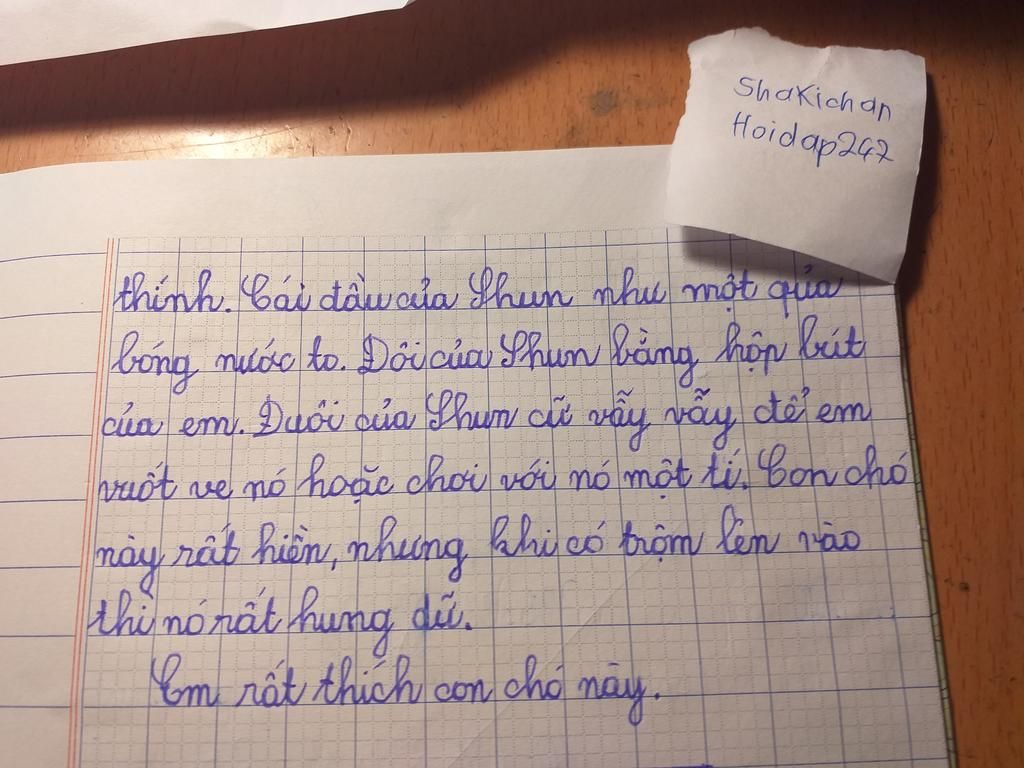 Shakichan
Hoidap247
thính. Cái đầu của Shun như một qủa
bóng nước to. Đôi của Shun bằng hộp bút
của em. Đuôi của Shun cữ vẫy vẫy để em
vuốt ve nó hoặc chơi với nó một tí. Con chó
này rất hiền, nhưng khi có trộm lẻn vào
thì nó rất hung dữ.
Em rất thích con chó này.